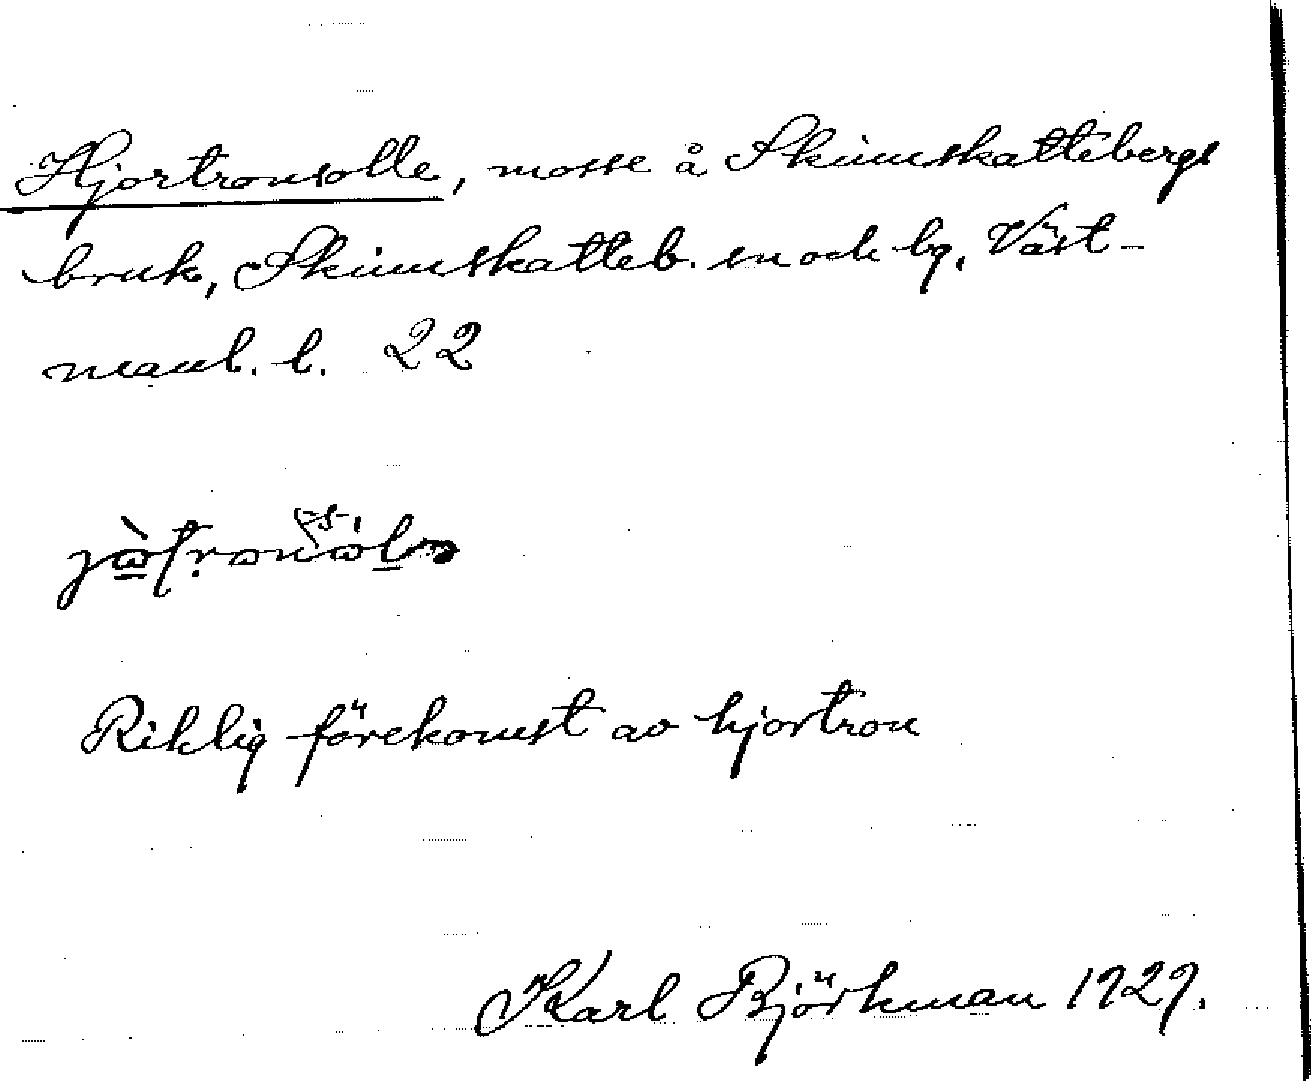 Hjortronsolle, mosse å Skinnskattebergs
bruk, Skinnskatteb. sn och bg, Väst-
manl. l. 22
Riklig förekomst av hjortron
Karl Björkman 1929.